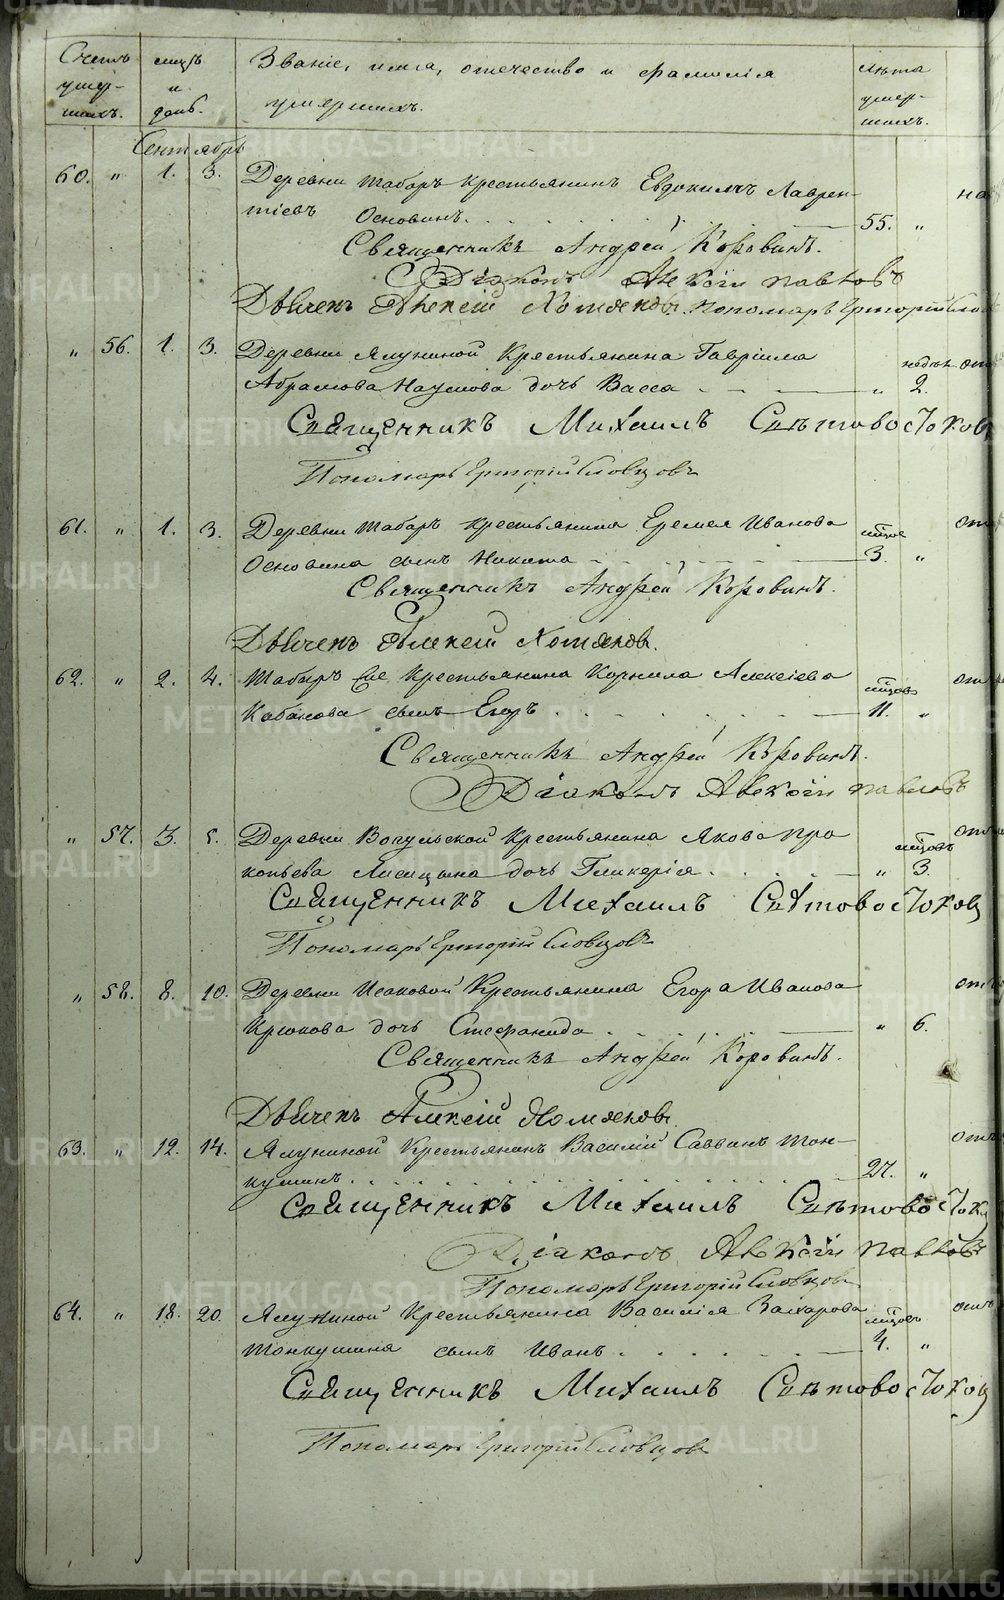 METRIKI.GASO-URAL.RU
Счетъ умер-шихъ. мѣцъ и день. Званіе, имя, отечество и фамилія умершихъ. лѣта умер-шихъ.
Сентябрь
60. " 1. 3. Деревни Табаръ крестьянинъ Евдокимъ Лаврен- на
тіевъ Основинъ. 55. "
Священникъ Андрей Коровинъ.
Діаконъ Алексій Павловъ
Дьячекъ Алексій Хомяковъ. Пономарь Григорій Слов
" 56. 1. 3. Деревни Ялуниной Крестьянина Гавріила недѣл. от
Абрамова Наумова дочь Васса " 2.
Священникъ Михаилъ Свѣтовостоков
Пономарь Григорій Словцовъ
61. " 1. 3. Деревни Табаръ крестьянина Еремея Иванова мѣцов от
Основина сынъ Никита 3. "
Священникъ Андрей Коровинъ.
Дьячекъ Алексій Хомяковъ.
62. " 2. 4. Табаръ Крестьянина Корнила Алексіева мѣцовъ от
Кабакова сынъ Егоръ 11. "
Священникъ Андрей Коровинъ.
Діаконъ Алексій Павловъ
" 57. 3. 5. Деревни Вогульской Крестьянина Якова Про мѣцовъ от
копьева Лисицына дочь Гликерія " 3.
Священникъ Михаилъ Свѣтовостоков
Пономарь Григорій Словцовъ
" 58. 8. 10. Деревни Исаковой Крестьянина Егора Иванова от
Крюкова дочь Стефанида " 6.
Священникъ Андрей Коровинъ.
Дьячекъ Алексій Хомяковъ.
63. " 12. 14. Ялуниной Крестьянинъ Василій Саввинъ Тон- отъ
кушинъ. 27. "
Священникъ Михаилъ Свѣтовосток
Діаконъ Алексій Павловъ
Пономарь Григорій Словцовъ
64. " 18. 20. Ялуниной Крестьянина Василія Захарова мѣцовъ отъ
Тонкушина сынъ Иванъ 4. "
Священникъ Михаилъ Свѣтовостоков
Пономарь Григорій Словцовъ
METRIKI.GASO-URAL.RU